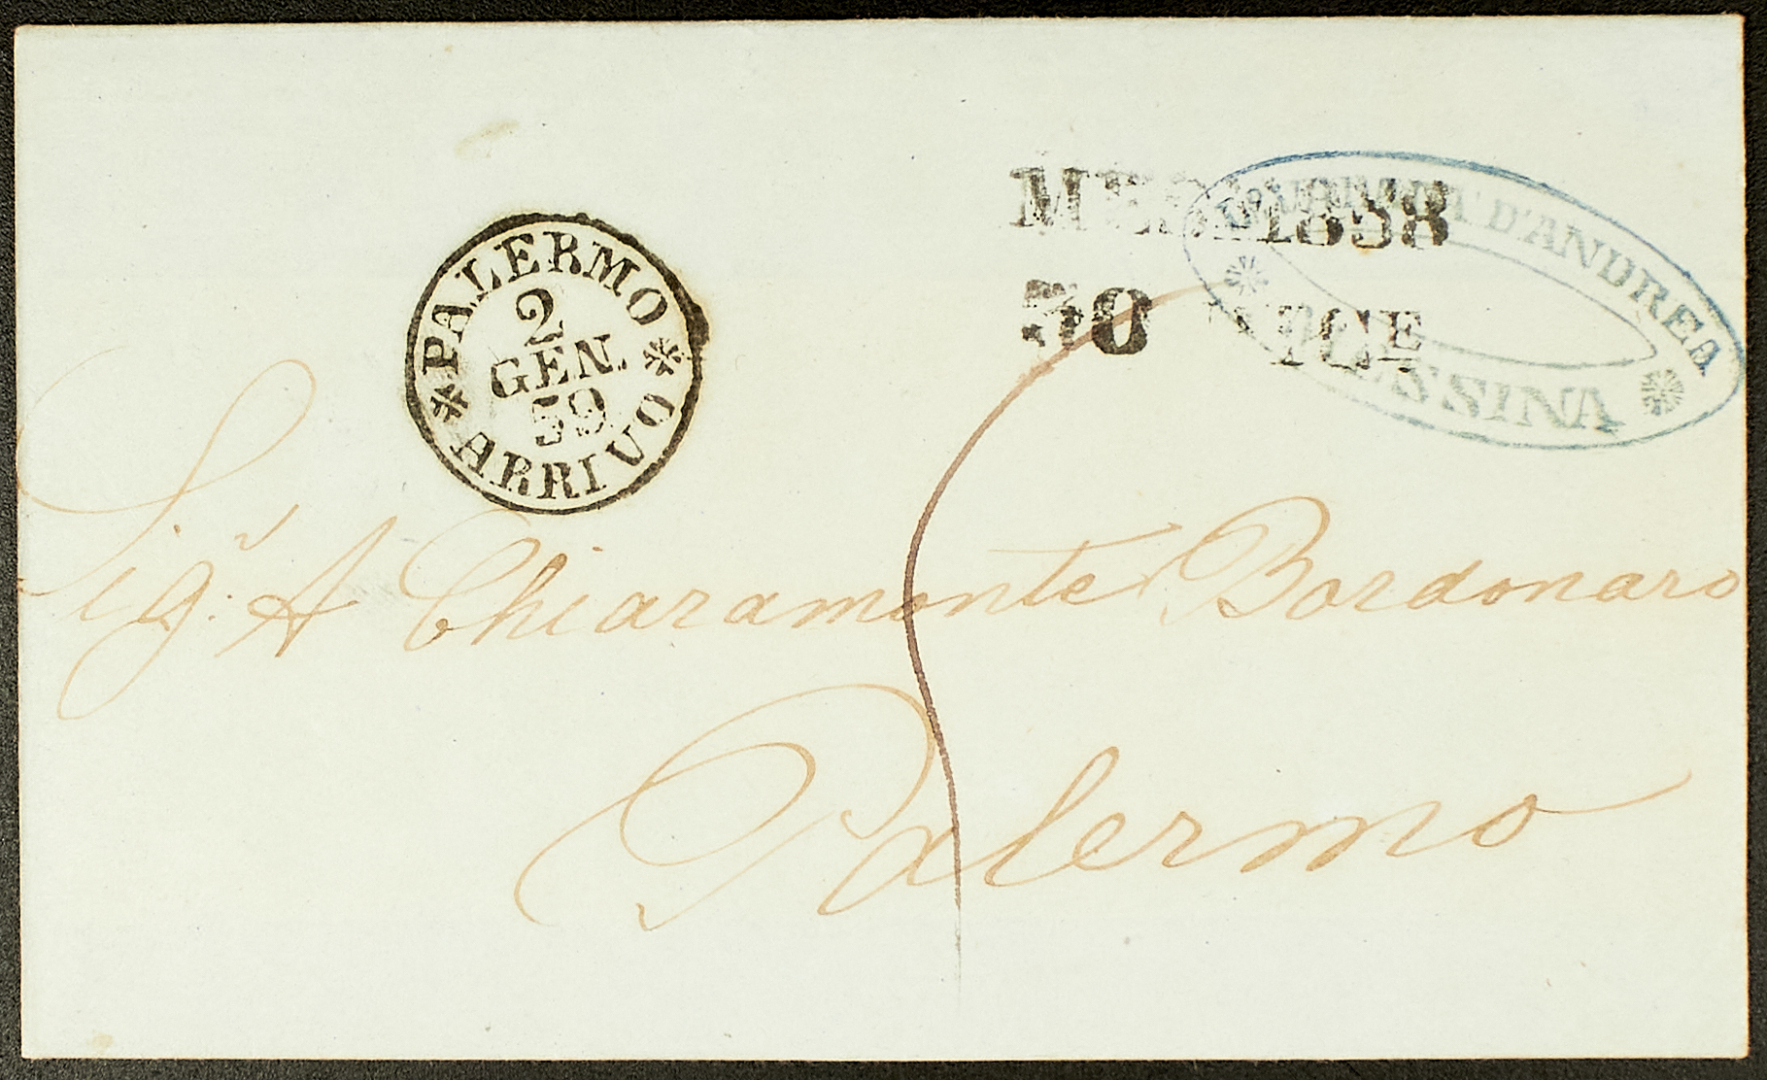 PALERMO
2
GEN.
59
ARRIVO
1858
30
D'ANDREA
MESSINA
Sig.r A Chiaramonte Bordonaro
Palermo